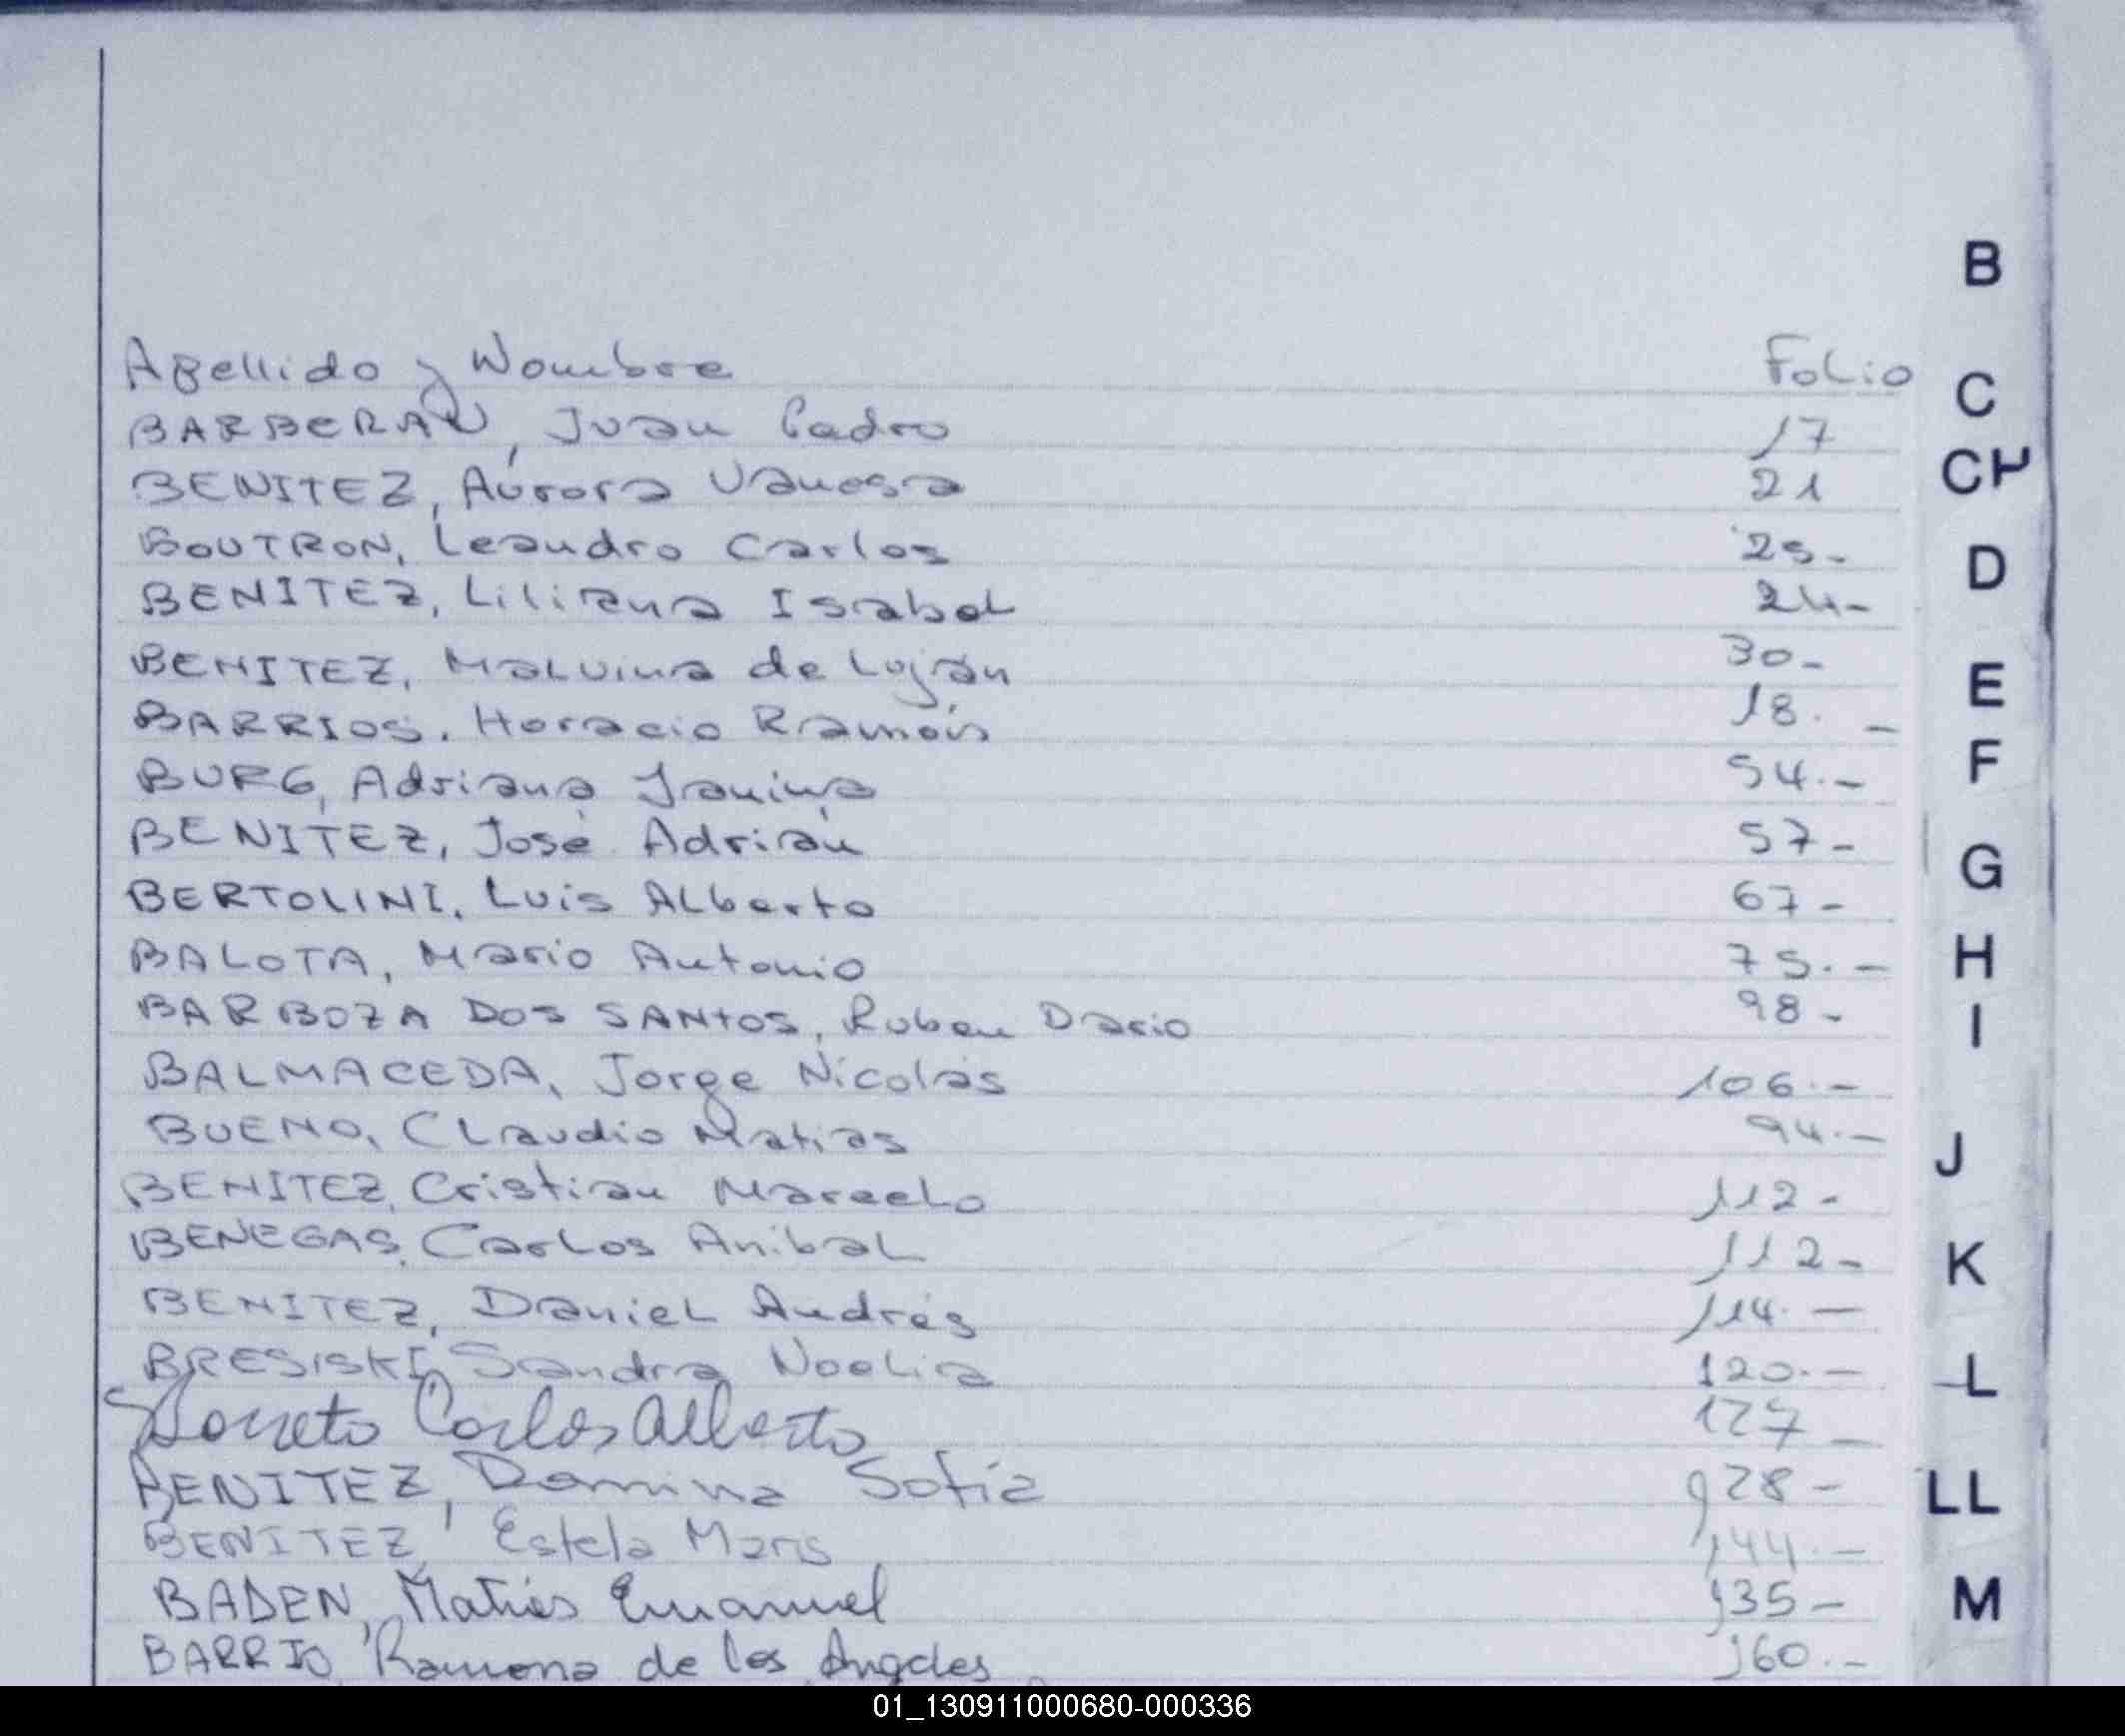 Apellido y Nombre Folio
BARBERAN, Juan Pedro 17
BENITEZ, Aurora Vanesa 21
BOUTRON, Leandro Carlos 25-
BENITEZ, Liliana Isabel 24-
BENITEZ, Malvina de Luján 30-
BARRIOS, Horacio Ramón 18.-
BURG, Adriana Janina 54.-
BENITEZ, José Adrián 57-
BERTOLINI, Luis Alberto 67-
BALOTA, Mario Antonio 75.-
BARBOZA DOS SANTOS, Ruben Dario 98-
BALMACEDA, Jorge Nicolás 106.-
BUENO, Claudio Matias 94.-
BENITEZ, Cristian Marcelo 112-
BENEGAS, Carlos Anibal 112-
BENITEZ, Daniel Andrés 114.-
BRESISKI, Sandra Noelia 120.-
Carlos Alberto 127-
BENITEZ, Romina Sofia 128-
BENITEZ, Estela Maris 144.-
BADEN, Matias Emanuel 135-
BARRIO, Ramona de los Angeles 160.-
B
C
CH
D
E
F
G
H
I
J
K
L
LL
M
01_130911000680-000336